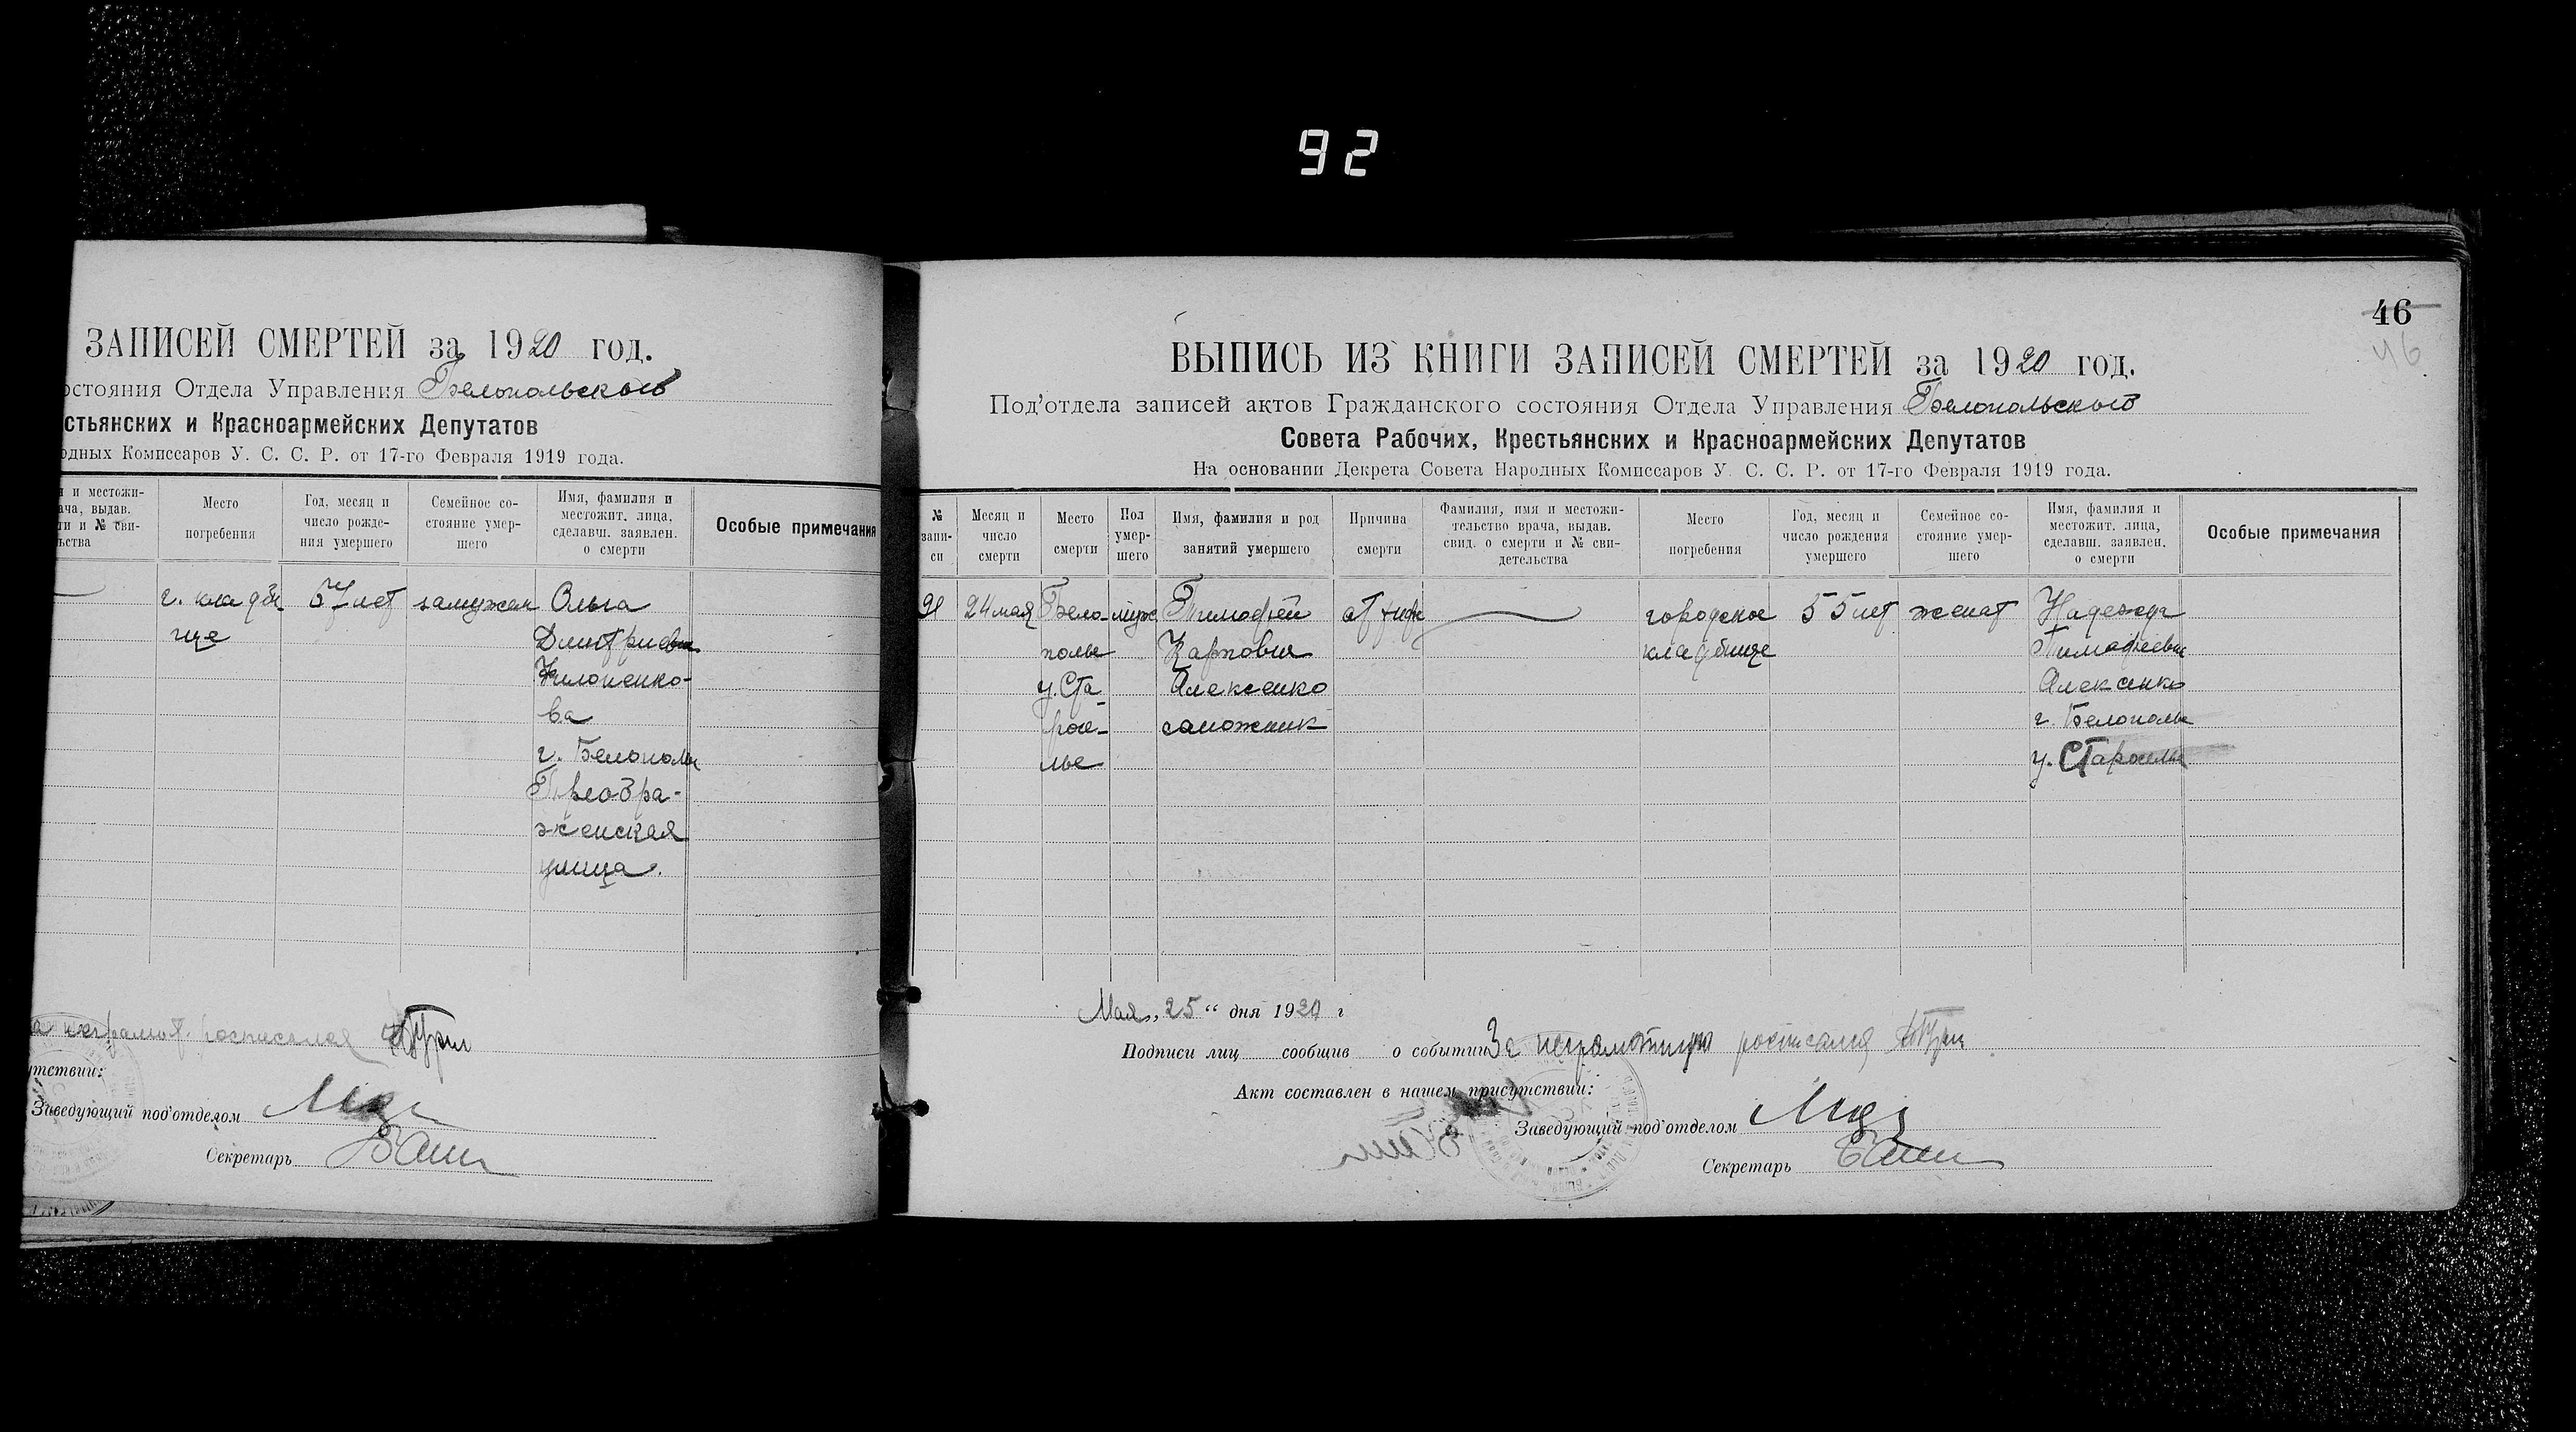 92
ЗАПИСЕЙ СМЕРТЕЙ за 1920 год.
остояния Отдела Управления Белопольского
стьянских и Красноармейских Депутатов
одных Комиссаров У. С. С. Р. от 17-го Февраля 1919 года.
и местожи-
ача, выдав.
ти и № сви-
ьства
Место
погребения
Год, месяц и
число рожде-
ния умершего
Семейное со-
стояние умер-
шего
Имя, фамилия и
местожит. лица,
сделавш. заявлен.
о смерти
Особые примечания
г. кладби
ще
57 лет
замужем
Ольга
Дмитриевна
ва
г. Белополье
Преобра-
женская
улица.
а неграмот. росписался
утствии:
Заведующий под'отделом
Секретарь
46
46
ВЫПИСЬ ИЗ КНИГИ ЗАПИСЕЙ СМЕРТЕЙ за 1920 год.
Под'отдела записей актов Гражданского состояния Отдела Управления Белопольского
Совета Рабочих, Крестьянских и Красноармейских Депутатов
На основании Декрета Совета Народных Комиссаров У. С. С. Р. от 17-го Февраля 1919 года.
№
запи-
си
Месяц и
число
смерти
Место
смерти
Пол
умер-
шего
Имя, фамилия и род
занятий умершего
Причина
смерти
Фамилия, имя и местожи-
тельство врача, выдав.
свид. о смерти и № сви-
детельства
Место
погребения
Год, месяц и
число рождения
умершего
Семейное со-
стояние умер-
шего
Имя, фамилия и
местожит. лица,
сделавш. заявлен.
о смерти
Особые примечания
91
24 мая
Бело-
полье
у. Ста
рое-
лье
муж
Тимофей
Карповия
Алексенко
сапожник
от тиф
городское
кладбище
55 лет
женат
Надежда
Тимофеевна
Алексенко
г. Белополье
у. Староселье
Мая „25“ дня 1920 г
Подписи лиц сообщив о событии За неграмотную росписался
Акт составлен в нашем присутствии:
Заведующий под'отделом
Секретарь